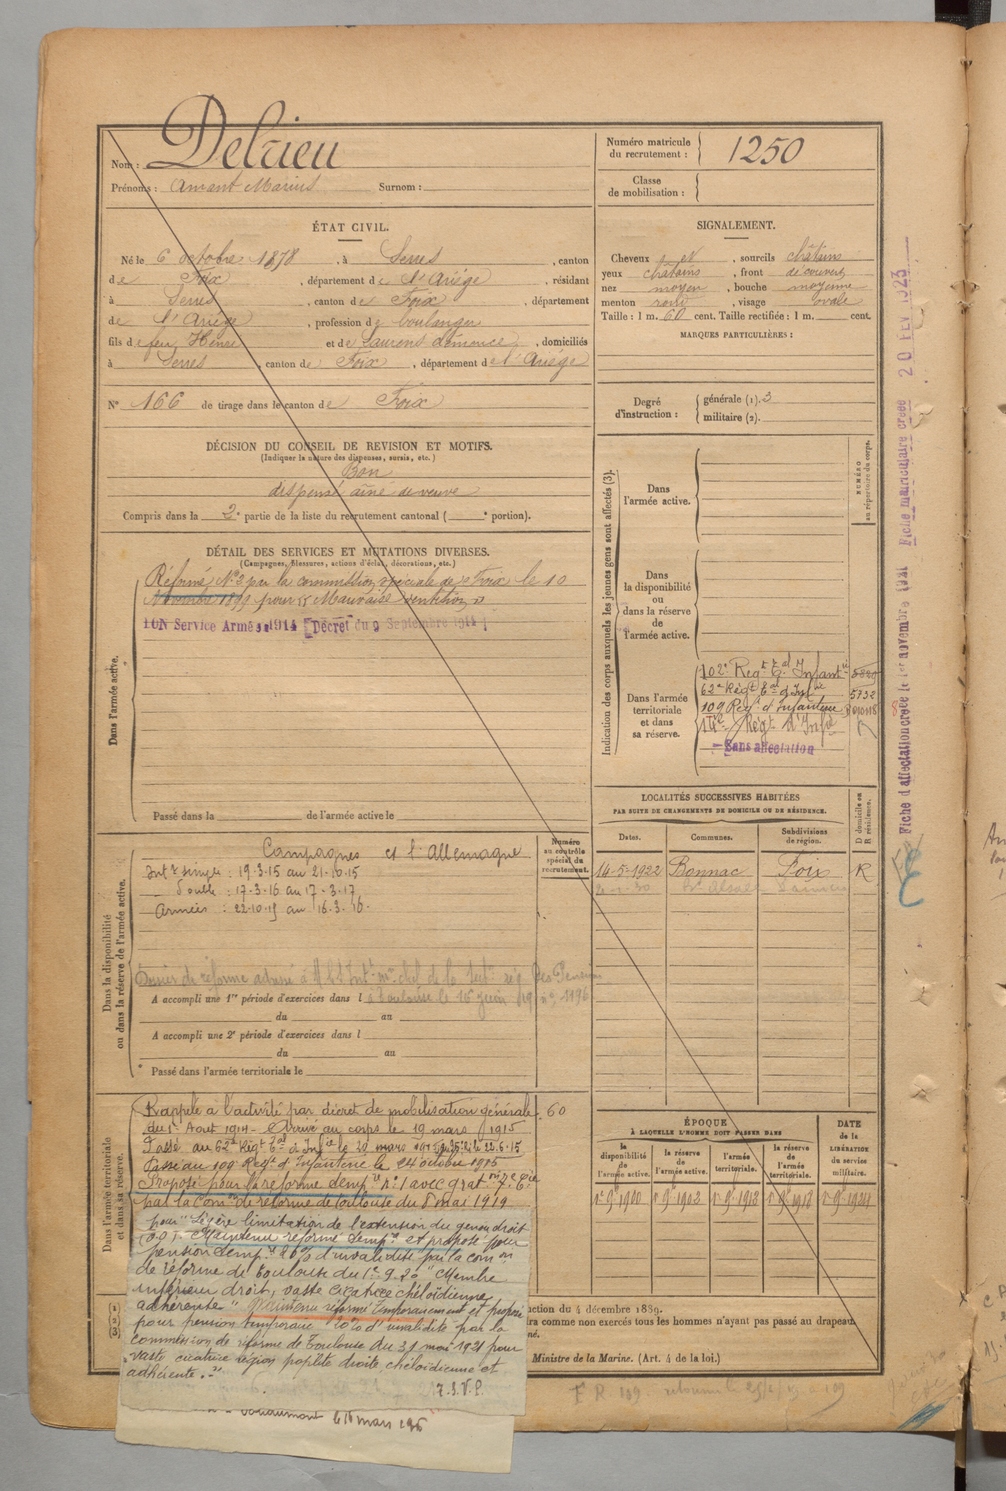 Nom : Delrieu
Prénoms : Amant Marius Surnom :
Numéro matricule du recrutement : 1250
Classe de mobilisation :
ÉTAT CIVIL.
Né le 6 octobre 1878, à Serres, canton
de Foix, département de l'Ariège, résidant
à Serres, canton de Foix, département
de l'Ariège, profession de boulanger
fils de feu Henri et de Laurens Clémence, domiciliés
à Serres, canton de Foix, département de l'Ariège
N° 166 de tirage dans le canton de Foix
SIGNALEMENT.
Cheveux et, sourcils châtains
yeux châtains, front découvert
nez moyen, bouche moyenne
menton rond, visage ovale
Taille : 1 m. 60 cent. Taille rectifiée : 1 m. cent.
MARQUES PARTICULIÈRES :
Degré d'instruction : générale (1). 3
militaire (2).
DÉCISION DU CONSEIL DE REVISION ET MOTIFS.
(Indiquer la nature des dispenses, sursis, etc.)
Bon
dispensé aîné de veuve
Compris dans la 2e partie de la liste du recrutement cantonal ( e portion).
DÉTAIL DES SERVICES ET MUTATIONS DIVERSES.
(Campagnes, blessures, actions d'éclat, décorations, etc.)
Réformé N° 2 par la commission spéciale de Foix le 10
Novembre 1899 pour "Mauvaise dentition"
BON Service Armé 1914 [Décret du 9 Septembre 1914]
Dans l'armée active.
Passé dans la de l'armée active le
Indication des corps auxquels les jeunes gens sont affectés (3).
NUMÉRO au répertoire du corps.
Dans l'armée active.
Dans la disponibilité ou dans la réserve de l'armée active.
Dans l'armée territoriale et dans sa réserve.
102e Regt Tal d'Infantie
62e Régt Tal d'Infie 5732
109 Regt d'Infanterie
Régt d'Infie
Sans affectation
Fiche d'affectation créée le 1er novembre 1921
Fiche matriculaire créée 20 FEV 1923
LOCALITÉS SUCCESSIVES HABITÉES
PAR SUITE DE CHANGEMENTS DE DOMICILE OU DE RÉSIDENCE.
D domicile ou R résidence.
Dates. Communes. Subdivisions de région.
14-5-1922 Bonnac Foix R
Dans la disponibilité ou dans la réserve de l'armée active.
Numéro au contrôle spécial du recrutement.
Campagnes ct l'Allemagne
Intre simple : 19-3-15 au 21-10-15
double : 17-3-16 au 17-3-17
Armées : 22-10-15 au 16-3-16
Dossier de réforme adressé à
A accompli une 1re période d'exercices dans l
à Toulouse le
du au
A accompli une 2e période d'exercices dans l
du au
Passé dans l'armée territoriale le
Dans l'armée territoriale et dans sa réserve.
Rappelé à l'activité par décret de mobilisation générale 60
du 1er Aout 1914 - Arrivé au corps le 19 mars 1915
Passé au 62e Régt Tal d'Infie le 22.6.15
Passé au 109 Regt d'Infanterie le 24 octobre 1915
Proposé pour la réforme tempre n° 1 avec grat.
par la Comon de réforme de Toulouse du 8 mai 1919
pour "Légère limitation de l'extension du genou droit
Maintenu réformé tempre et proposé pour
pension tempre 20% d'invalidité par la comon
de réforme de Toulouse du 1er 9.20 "Membre
inférieur droit, vaste cicatrice chéloïdienne
adhérente" Maintenu réformé temporairement et proposé
pour pension temporaire 10% d'invalidité par la
commission de réforme de Toulouse du 31 mai 1921 pour
"vaste cicatrice région poplité droite chéloïdienne et
adhérente."
T.S.V.P.
mars
ÉPOQUE
À LAQUELLE L'HOMME DOIT PASSER DANS
la disponibilité de l'armée active. la réserve de l'armée active. l'armée territoriale. la réserve de l'armée territoriale.
DATE de la LIBÉRATION du service militaire.
1er 9bre 1902 1er 9bre 1918
ction du 4 décembre 1889.
ra comme non exercés tous les hommes n'ayant pas passé au drapeau
Ministre de la Marine. (Art. 4 de la loi.)